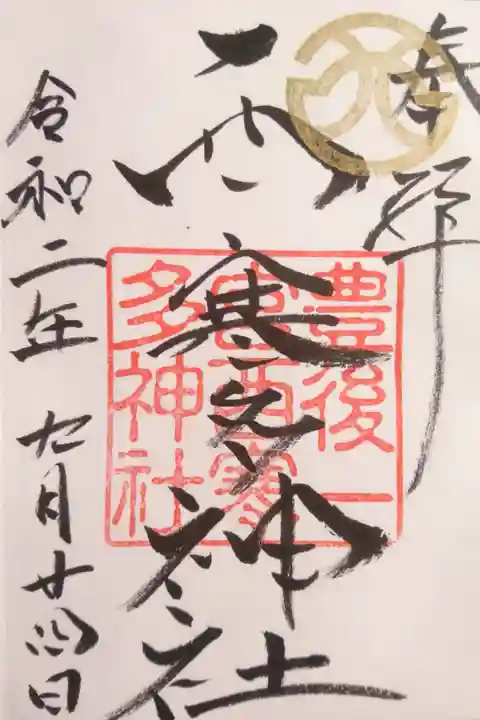 奉拝
西寒多神社
豊後一
宮西寒
多神社
令和二年 九月廿四日